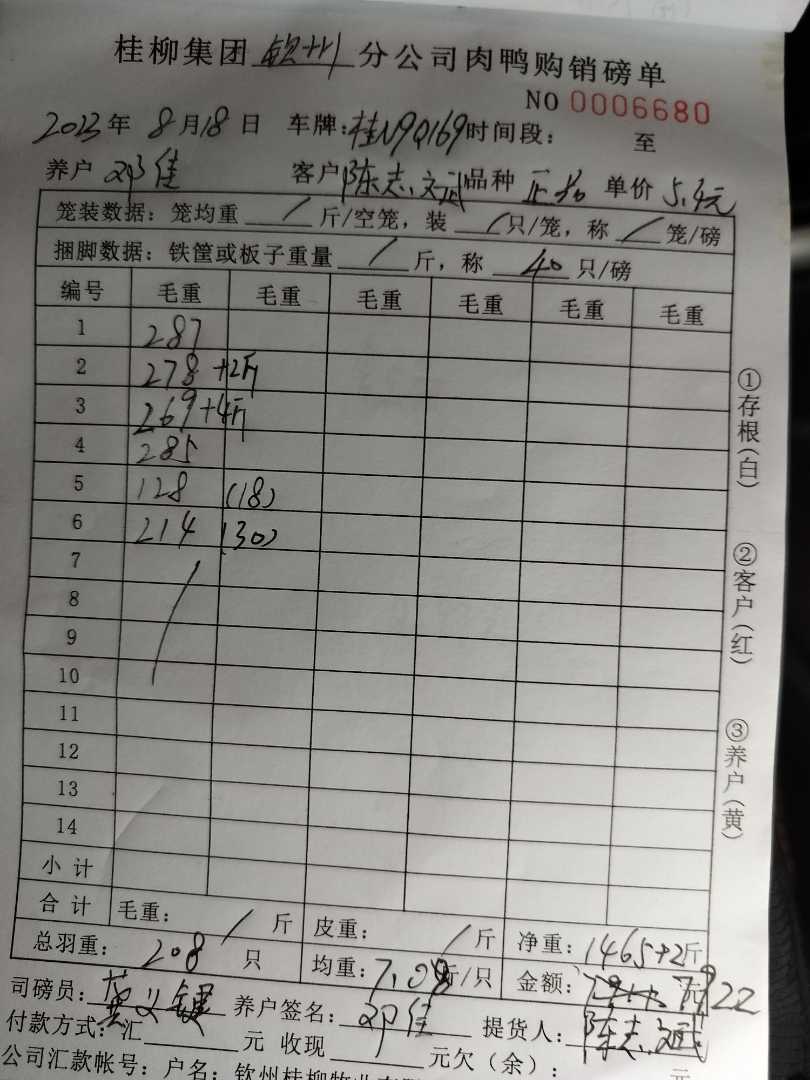 桂柳集团 钦州 分公司肉鸭购销磅单
NO 0006680
2023年 8月18日 车牌:桂N9Q169 时间段: 至
养户 邓佳 客户 陈志斌 品种 单价 5.4元
笼装数据: 笼均重 / 斤/空笼, 装 / 只/笼, 称 / 笼/磅
捆脚数据: 铁筐或板子重量 / 斤, 称 40 只/磅
编号 毛重 毛重 毛重 毛重 毛重 毛重
1 287
2 278 +2斤
3 269 +4斤
4 285
5 128 (18)
6 214 (30)
7
8
9
10
11
12
13
14
小计
合计 毛重: / 斤 皮重: / 斤 净重: 1465+2斤
总羽重: 208 只 均重: 7.05斤/只 金额: 7922
司磅员: 养户签名: 邓佳 提货人: 陈志斌
付款方式: 汇 元 收现 元欠(余): 元
公司汇款帐号: 户名: 钦州桂柳牧业有限
①存根(白)
②客户(红)
③养户(黄)